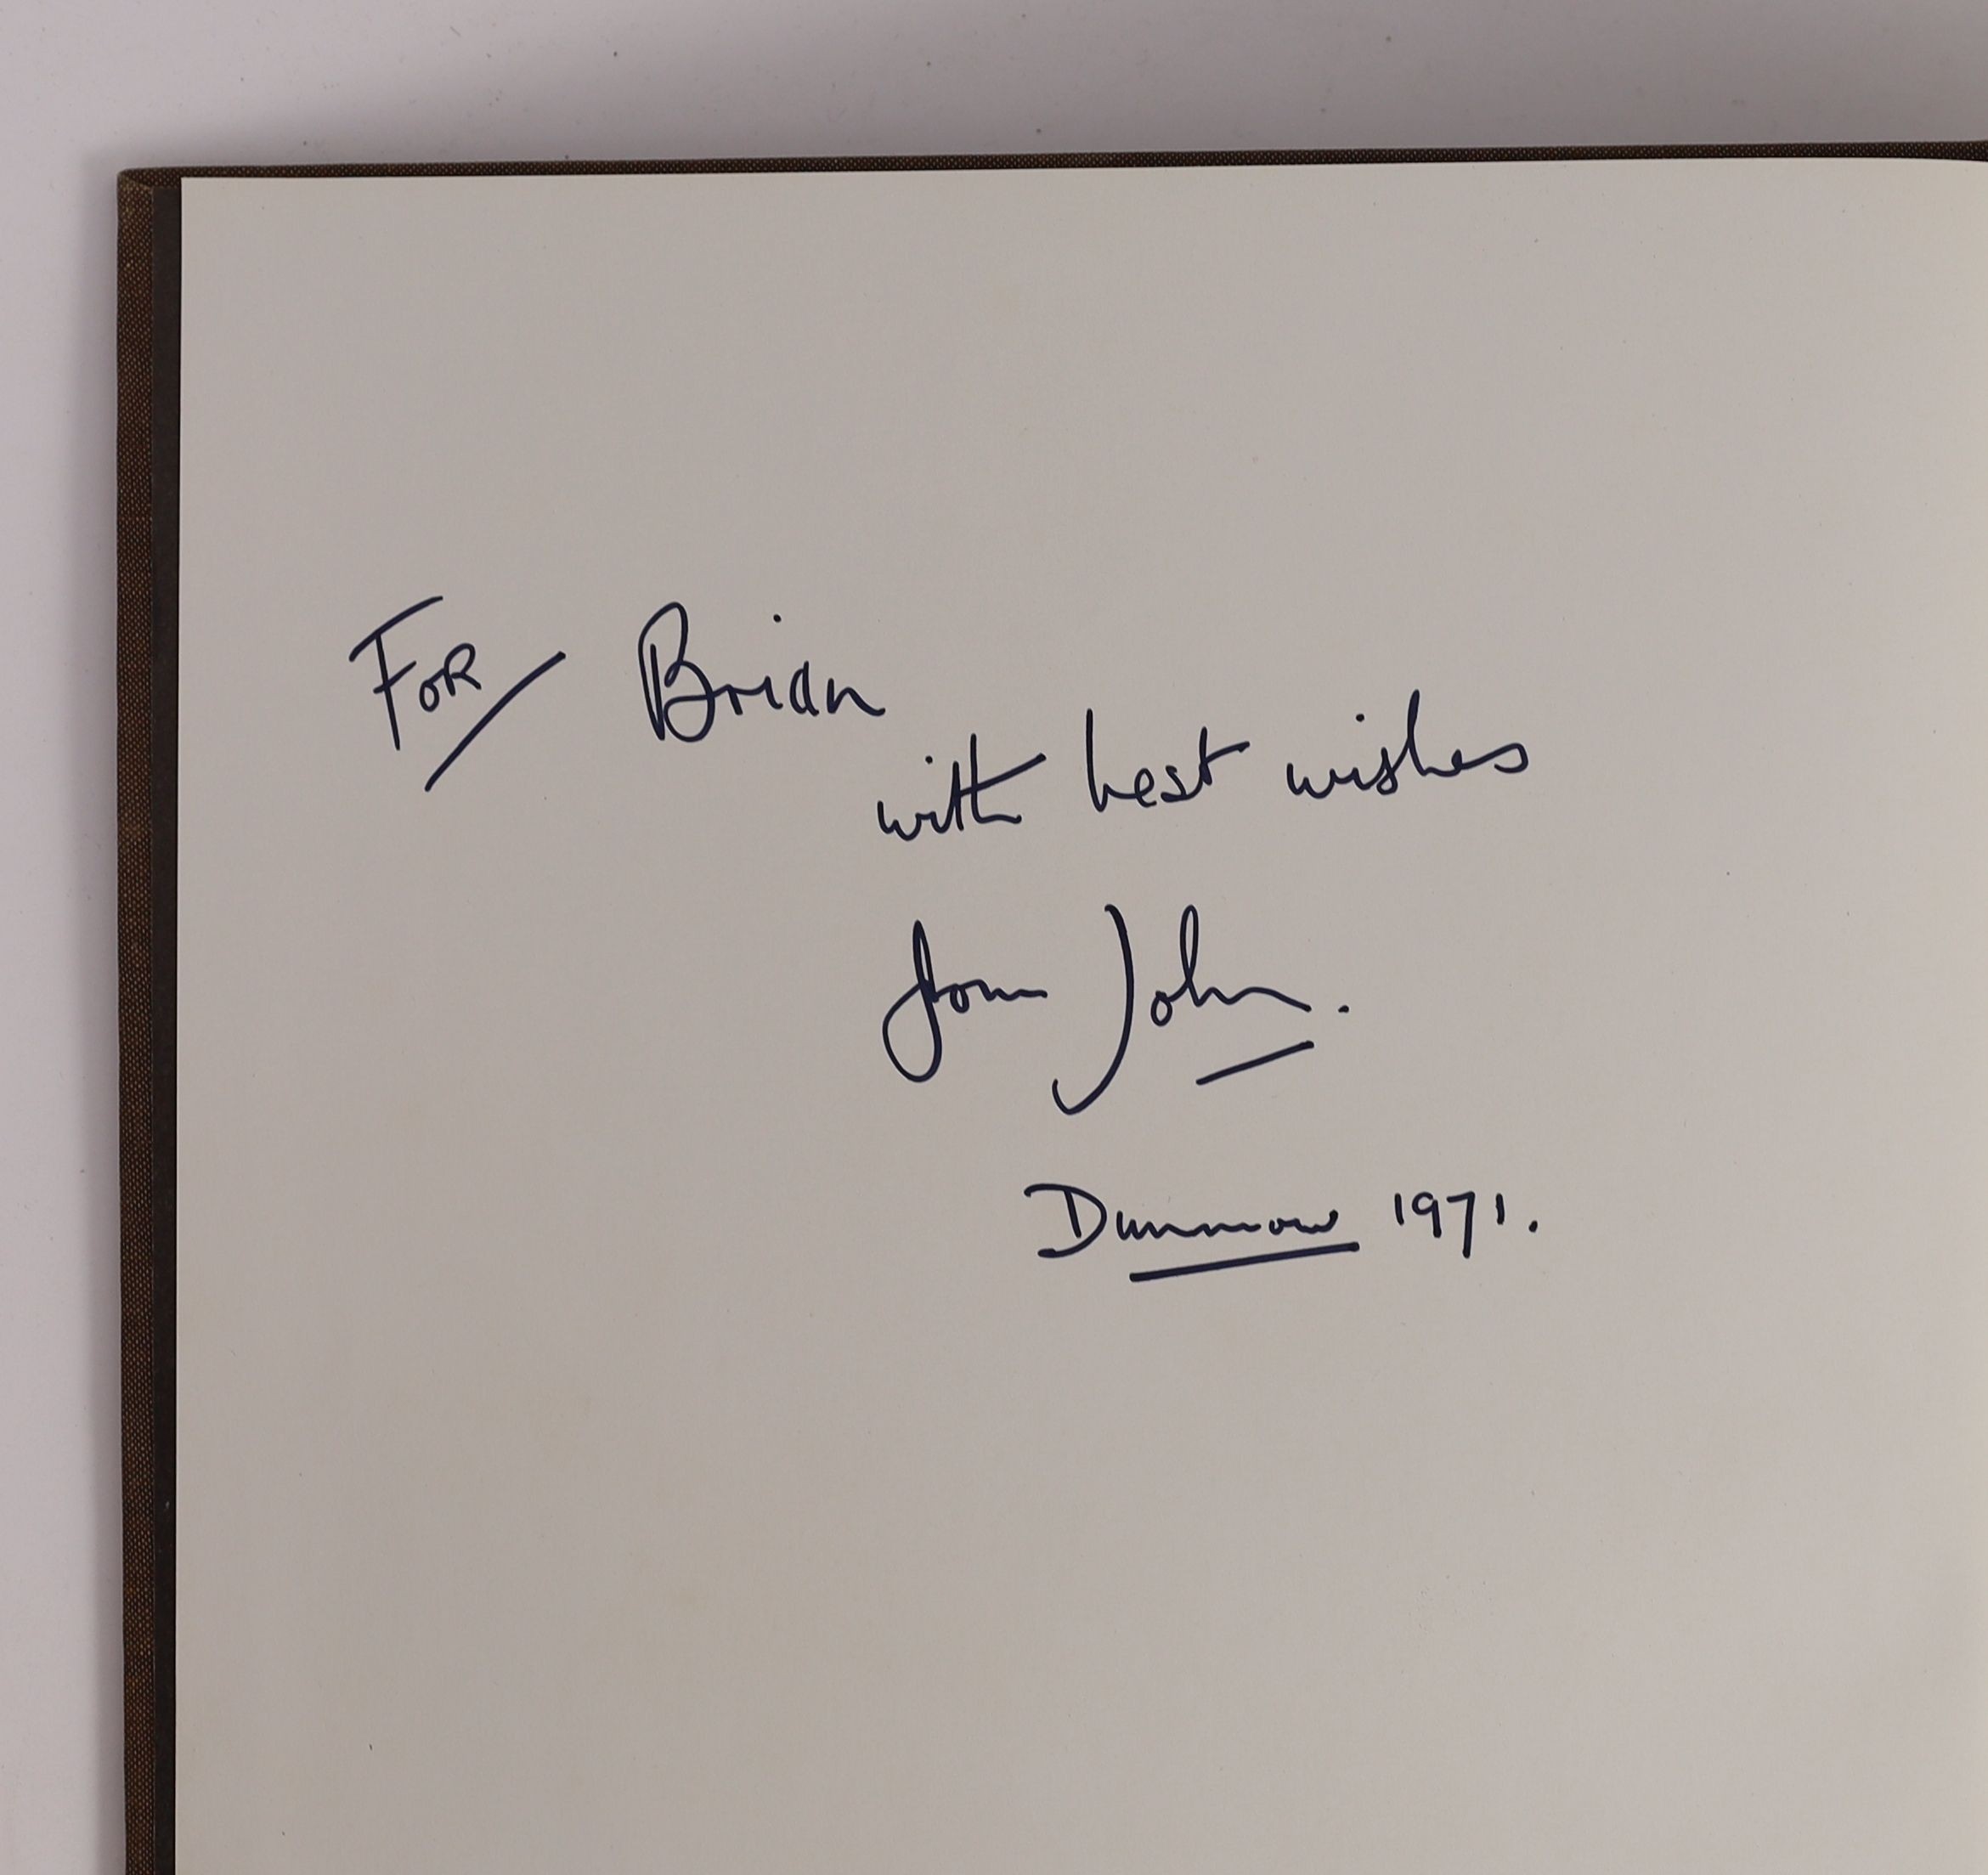 FOR Brian
with best wishes
from John.
Dunmow 1971.